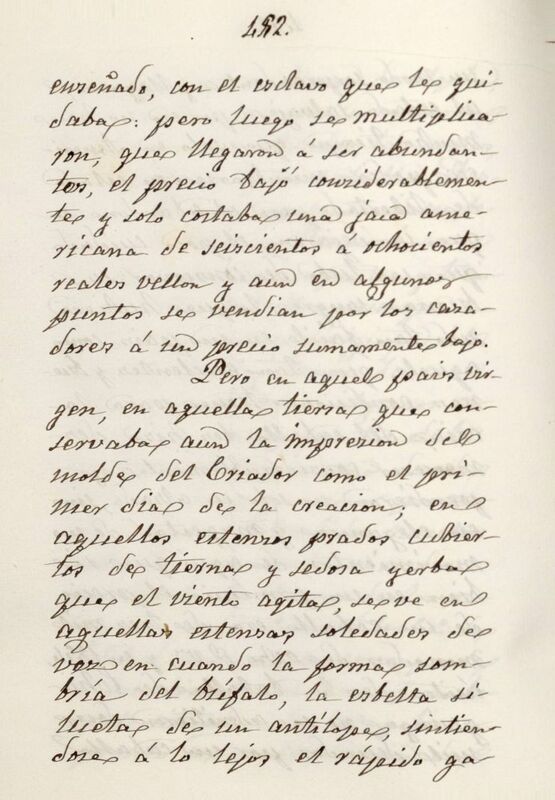 482.
enseñado, con el esclavo que le cui-
daba: pero luego se multiplica-
ron, que llegaron á ser abundan-
tes, el precio bajó considerablemen-
te y solo costaba una jaca ame-
ricana de seiscientos á ochocientos
reales vellon y aun en algunos
puntos se vendian por los caza-
dores á un precio sumamente bajo.
Pero en aquel pais vir-
gen, en aquella tierra que con-
servaba aun la impresion del
molde del Criador como el pri-
mer dia de la creacion; en
aquellos estensos prados cubier-
tos de tierna y sedosa yerba
que el viento agita, se ve en
aquellas estensas soledades de
vez en cuando la forma som-
bría del búfalo, la esbelta si-
lueta de un antilope, sintien-
dose á lo lejos el rápido ga-